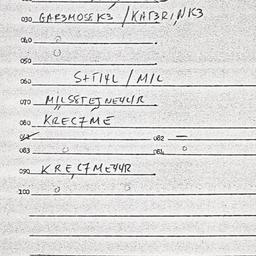 030 GAR3MOSEK3 / KAT3RINK3
040
050
060 S+TI4L / MIL
070 MILSETEJNE4LIR
080 KREC7ME
082 —
083 084 0
090 KREC7ME44R
100